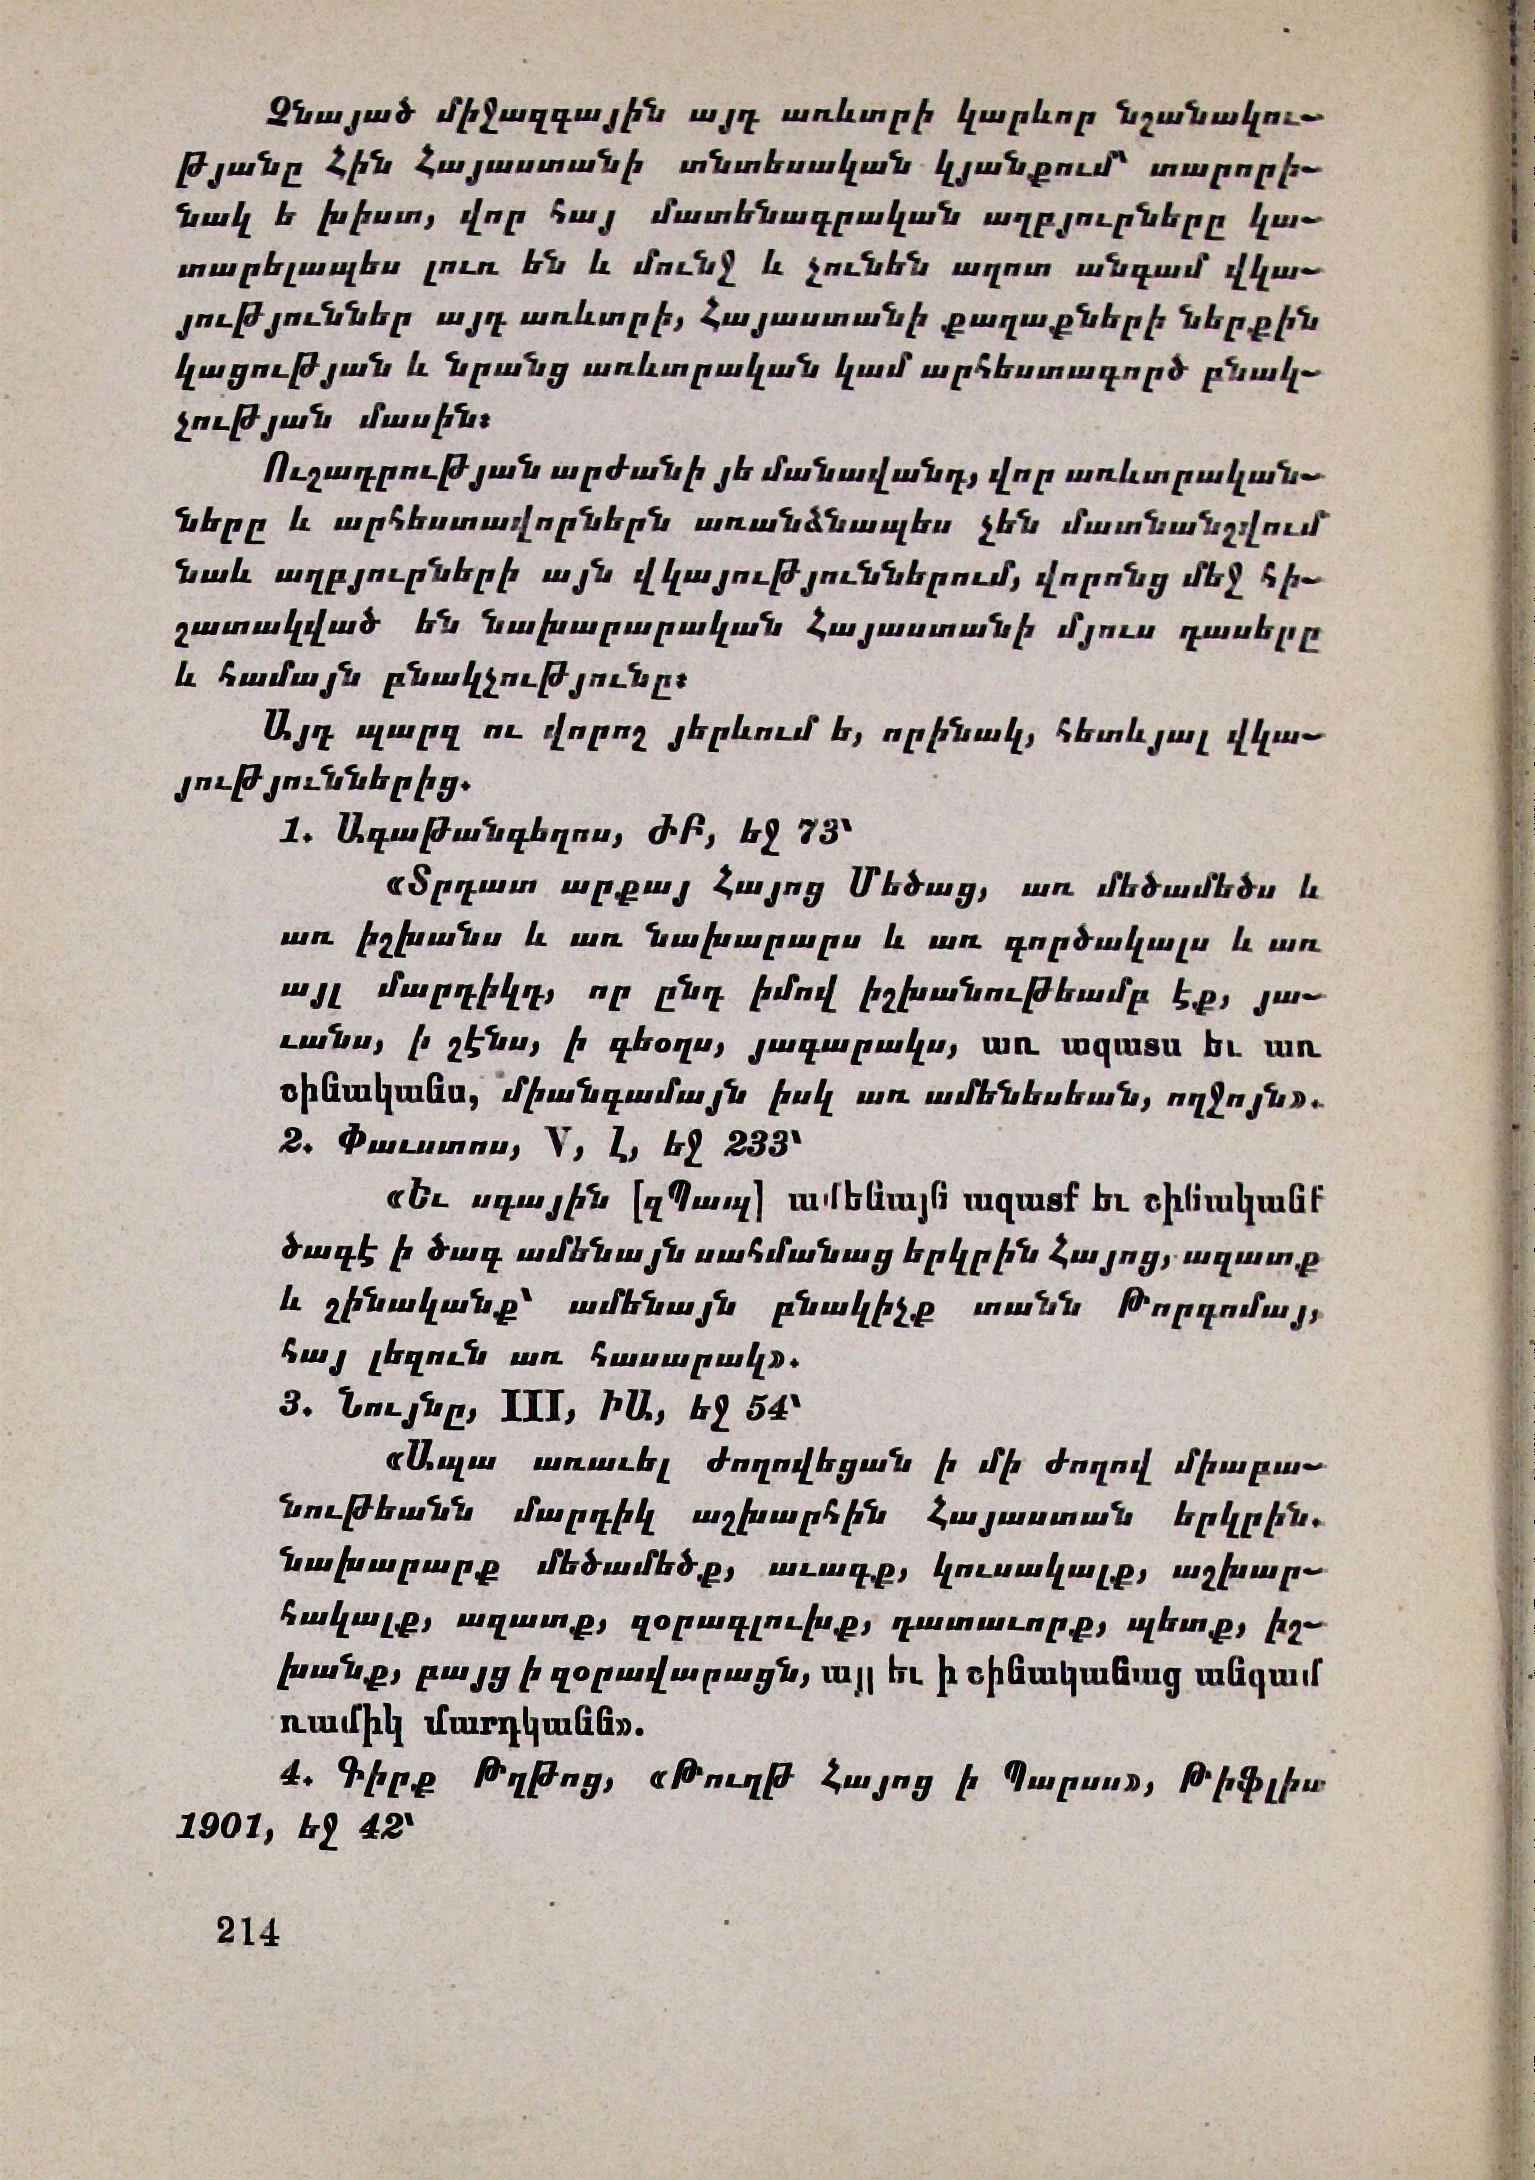 Չնայած միջազգային այդ առևտրի կարևոր նշանակու-
թյանը Հին Հայաստանի տնտեսական կյանքում՝ տարորի-
նակ ե խիստ, վոր հայ մատենագրական աղբյուրները կա-
տարելապես լուռ են և մունջ և չունեն աղոտ անգամ վկա-
յություններ այդ առևտրի, Հայաստանի քաղաքների ներքին
կացության և նրանց առևտրական կամ արհեստագործ բնակ-
չության մասին։
Ուշադրության արժանի յե մանավանդ, վոր առևտրական-
ները և արհեստավորներն առանձնապես չեն մատնանշվում
նաև աղբյուրների այն վկայություններում, վորոնց մեջ հի-
շատակված են նախարարական Հայաստանի մյուս դասերը
և համայն բնակչությունը։
Այդ պարզ ու վորոշ յերևում ե, որինակ, հետևյալ վկա-
յություններից.
1. Ագաթանգեղոս, ԺԲ, եջ 73՝
«Տրդատ արքայ Հայոց Մեծաց, առ մեծամեծս և
առ իշխանս և առ նախարարս և առ գործակալս և առ
այլ մարդիկդ, որ ընդ իմով իշխանութեամբ էք, յա-
ւանս, ի շէնս, ի գեօղս, յագարակս, առ ազատս եւ առ
շինականս, միանգամայն իսկ առ ամենեսեան, ողջոյն».
2. Փաւստոս, V, Լ, եջ 233՝
«Եւ սգային [զՊապ] ամենայն ազատք եւ շինականք
ծագէ ի ծագ ամենայն սահմանաց երկրին Հայոց, ազատք
և շինականք՝ ամենայն բնակիչք տանն Թորգոմայ,
հայ լեզուն առ հասարակ».
3. Նույնը, III, ԻԱ, եջ 54՝
«Ապա առաւել ժողովեցան ի մի ժողով միաբա-
նութեանն մարդիկ աշխարհին Հայաստան երկրին.
նախարարք մեծամեծք, աւագք, կուսակալք, աշխար-
հակալք, ազատք, զօրագլուխք, դատաւորք, պետք, իշ-
խանք, բայց ի զօրավարացն, այլ եւ ի շինականաց անգամ
ռամիկ մարդկանն».
4. Գիրք Թղթոց, «Թուղթ Հայոց ի Պարսս», Թիֆլիս
1901, եջ 42՝
214